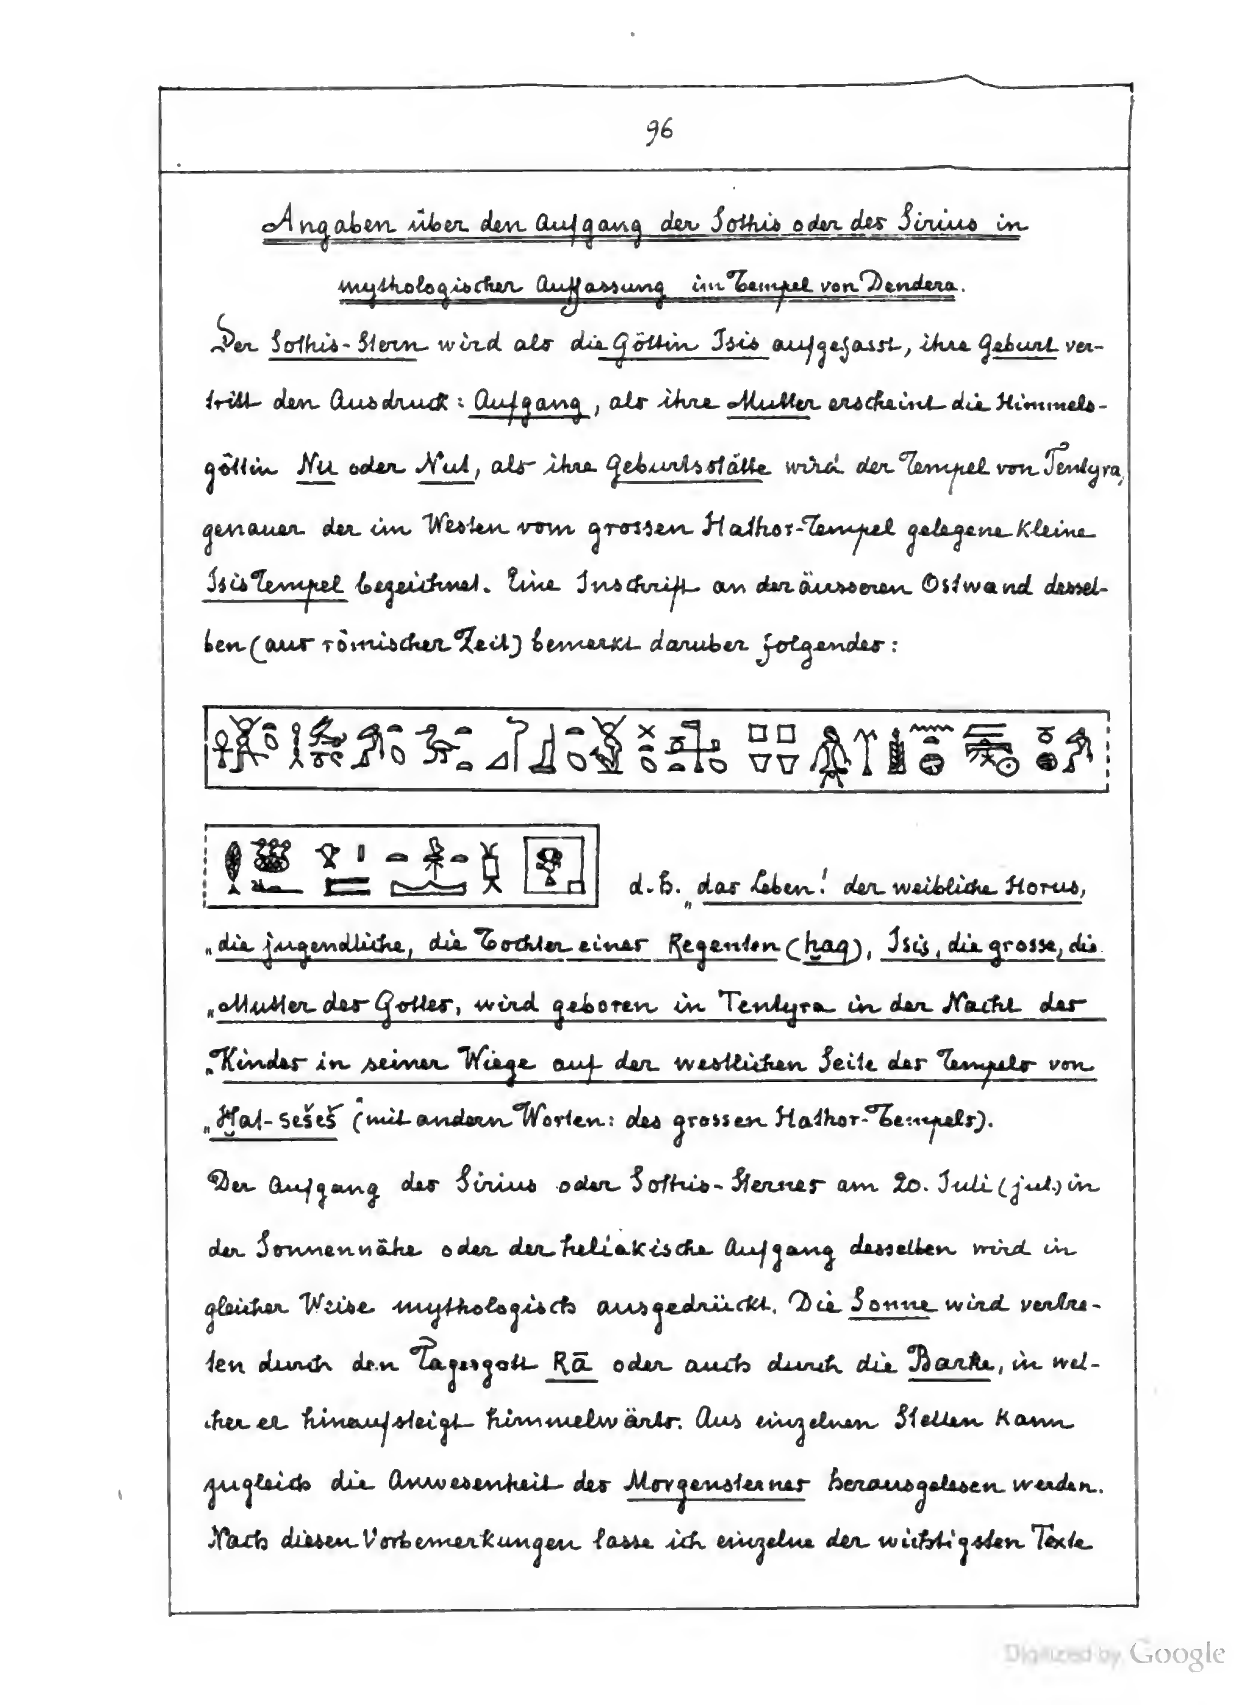 96
Angaben über den Aufgang der Sothis oder des Sirius in
mythologischer Auffassung im Tempel von Dendera.
Der Sothis-Stern wird als die Göttin Isis aufgefasst, ihre Geburt ver-
tritt den Ausdruck: Aufgang, als ihre Mutter erscheint die Himmels-
göttin Nu oder Nut, als ihre Geburtsstätte wird der Tempel von Tentyra,
genauer der im Westen vom grossen Hathor-Tempel gelegene kleine
Isis Tempel bezeichnet. Eine Inschrift an der äusseren Ostwand dessel-
ben (aus römischer Zeit) bemerkt daruber folgendes:
d.h. „das Leben! der weibliche Horus,
„die jugendliche, die Tochter eines Regenten (ḥaq), Isis, die grosse, die
„Mutter des Gottes, wird geboren in Tentyra in der Nacht des
„Kindes in seiner Wiege auf der westlichen Seite des Tempels von
„Ḥat-sešeš“ (mit andern Worten: des grossen Hathor-Tempels).
Der Aufgang des Sirius oder Sothis-Sternes am 20. Juli (jul.) in
der Sonnennähe oder der heliakische Aufgang desselben wird in
gleicher Weise mythologisch ausgedrückt. Die Sonne wird vertre-
ten durch den Tagesgott Rā oder auch durch die Barke, in wel-
cher er hinaufsteigt himmelwärts. Aus einzelnen Stellen kann
zugleich die Anwesenheit des Morgensternes herausgelesen werden.
Nach diesen Vorbemerkungen lasse ich einzelne der wichtigsten Texte
Digitized by Google